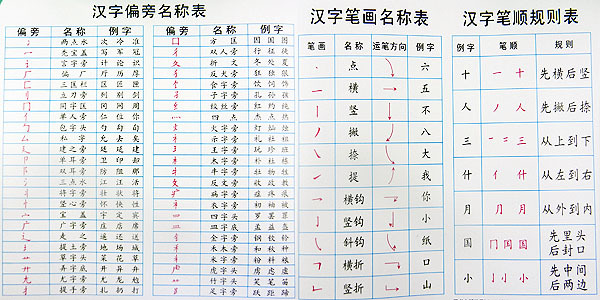 汉字偏旁名称表
偏旁 名称 例字 偏旁 名称 例字
冫 两点水 次冷准 囗 方框 因国图
冖 秃宝盖 写军冠 彳 双人旁 行征徒
讠 言字旁 计论识 夂 折文 冬处夏
厂 偏厂 厅历厚 犭 反犬旁 狂独狠
匚 三匡栏 区匠匣 饣 食字旁 饮饲饰
刂 立刀旁 列别剑 孑 子字旁 孔孙孩
冂 同字匡 冈网周 纟 绞丝旁 红约纯
亻 单人旁 仁位你 灬 四点 杰点热
勹 包字头 勺勾旬 火 火字旁 灯灿烛
厶 私字 允去矣 礻 示字旁 礼社祖
廴 建之旁 廷延建 王 王字旁 玩珍班
卩 单耳旁 卫印却 木 木字旁 朴杜栋
阝 双耳旁 防阻那 牜 牛字旁 牡物牲
氵 三点水 江汪活 攵 反文旁 收政教
丬 将字旁 壮状将 疒 病字旁 症疼痕
忄 竖心旁 怀快性 衤 衣字旁 初袖被
宀 宝盖 宇定宾 罒 四字头 罗罢罪
广 广字旁 庄店席 皿 皿字底 盂益盔
辶 走之 过还送 钅 金字旁 钢钦铃
土 提土旁 地场城 禾 禾木旁 和秋种
艹 草字头 艾花草 米 米字旁 粉料粮
廾 弄字底 开弄异 虍 虎字头 虏虑虚
尢 尤字旁 尤龙尬 竹 竹字头 笑笔笛
扌 提手旁 扎扔打 足 足字旁 跃距蹄
汉字笔画名称表
笔画 名称 运笔方向 例字
点 六
横 五
竖 不
撇 八
捺 大
提 我
横钩 你
竖钩 小
斜钩 纸
横折 口
竖折 山
汉字笔顺规则表
例字 笔顺 规则
十 一十 先横后竖
人 丿人 先撇后捺
三 一二三 从上到下
什 亻什 从左到右
月 冂月 从外到内
国 冂国国 先里头后封口
小 亅小小 先中间后两边